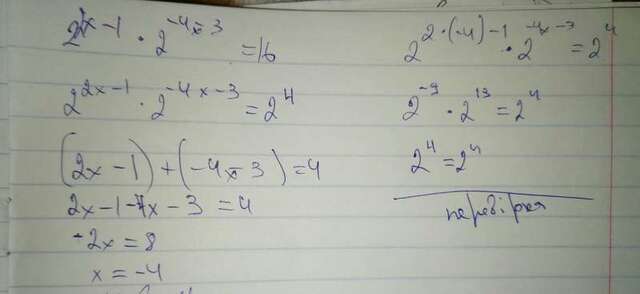 2^{2x-1} · 2^{-4x-3} = 16
2^{2x-1} · 2^{-4x-3} = 2^4
(2x-1)+(-4x-3)=4
2x-1-4x-3=4
-2x=8
x=-4
2^{2·(-4)-1} · 2^{-4x-3} = 2^4
2^{-9} · 2^{13} = 2^4
2^4 = 2^4
перевірка